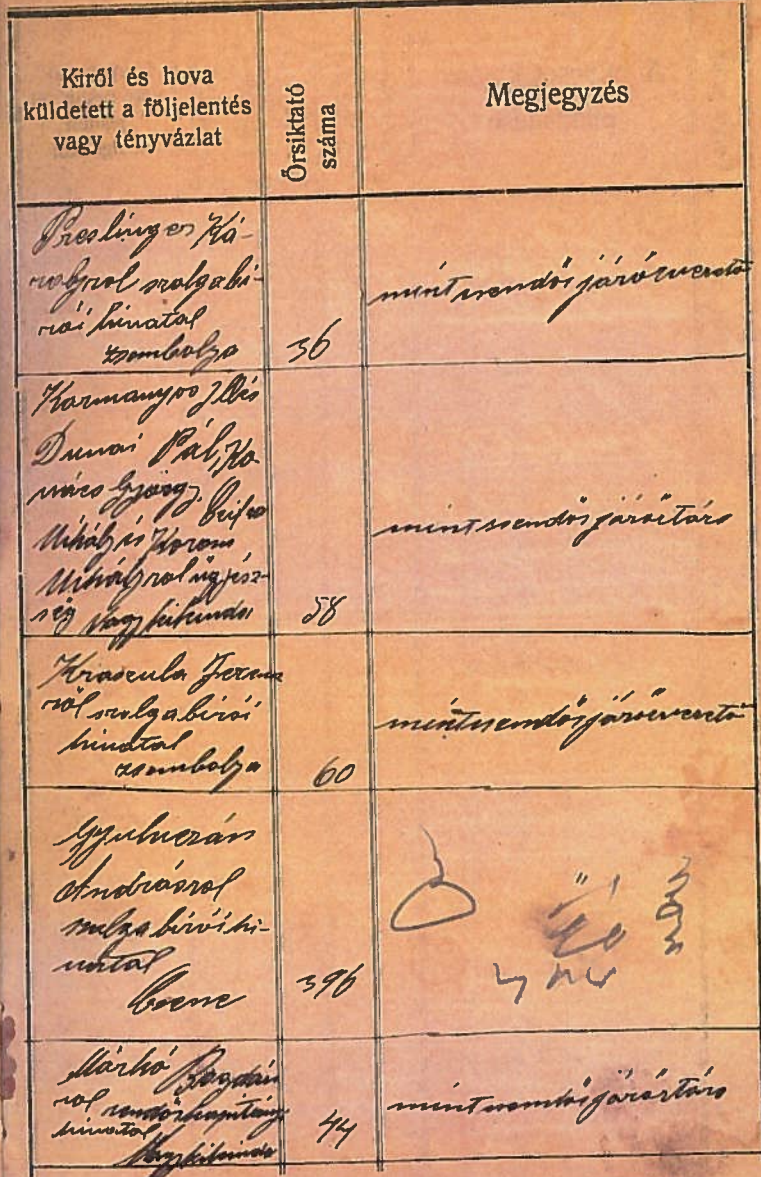 Kiről és hova
küldetett a följelentés
vagy tényvázlat
Őrsiktató
száma
Megjegyzés
Preslinger Ká-
rolyrol szolgabi-
rói hivatal
zsombolya
36
mint csendőr járőrvezető
Kormanyos Illés
Dunai Pál, Ko
vács György,
Mihály és
Mihályrol ügyész-
ség Nagykikinda
58
mint csendőr járőrtárs
Ferenc
ről szolgabirói
hivatal
zsombolya
60
mint csendőr járőrvezető
Andrásrol
szolgabirói hi-
vatal
Csene
396
Márkó Bogdán
rol rendőrkapitányi
hivatal
Nagykikinda
44
mint csendőr járőrtárs